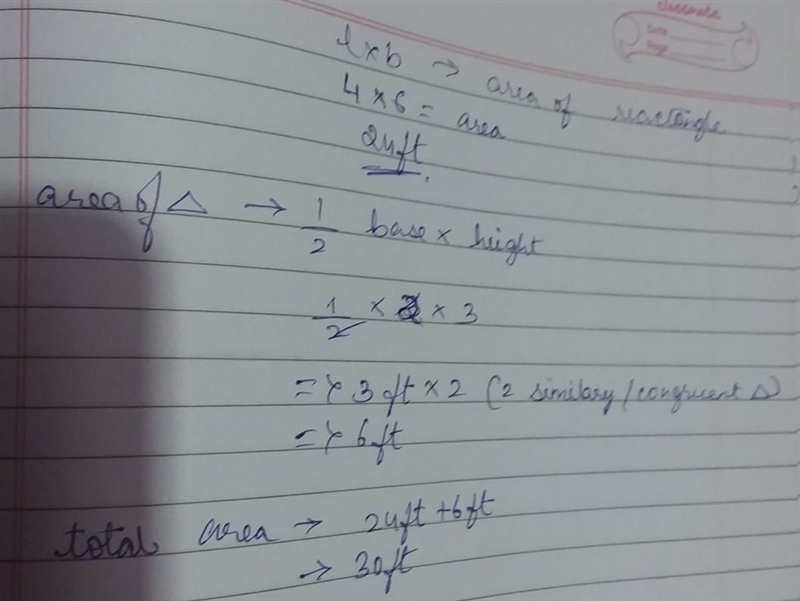 classmate
Date
Page
l×b → area of reactangle
4×6 = area
24ft.
area of △ → 1/2 base × height
1/2 × 2 × 3
=> 3ft × 2 (2 similary/congruent △)
=> 6ft
total area → 24ft + 6ft
→ 30ft